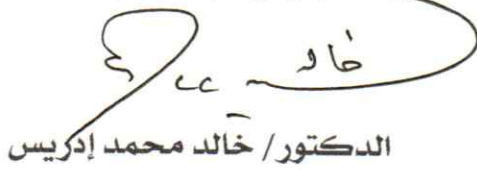 خالد
الدكتور/ خالد محمد إدريس